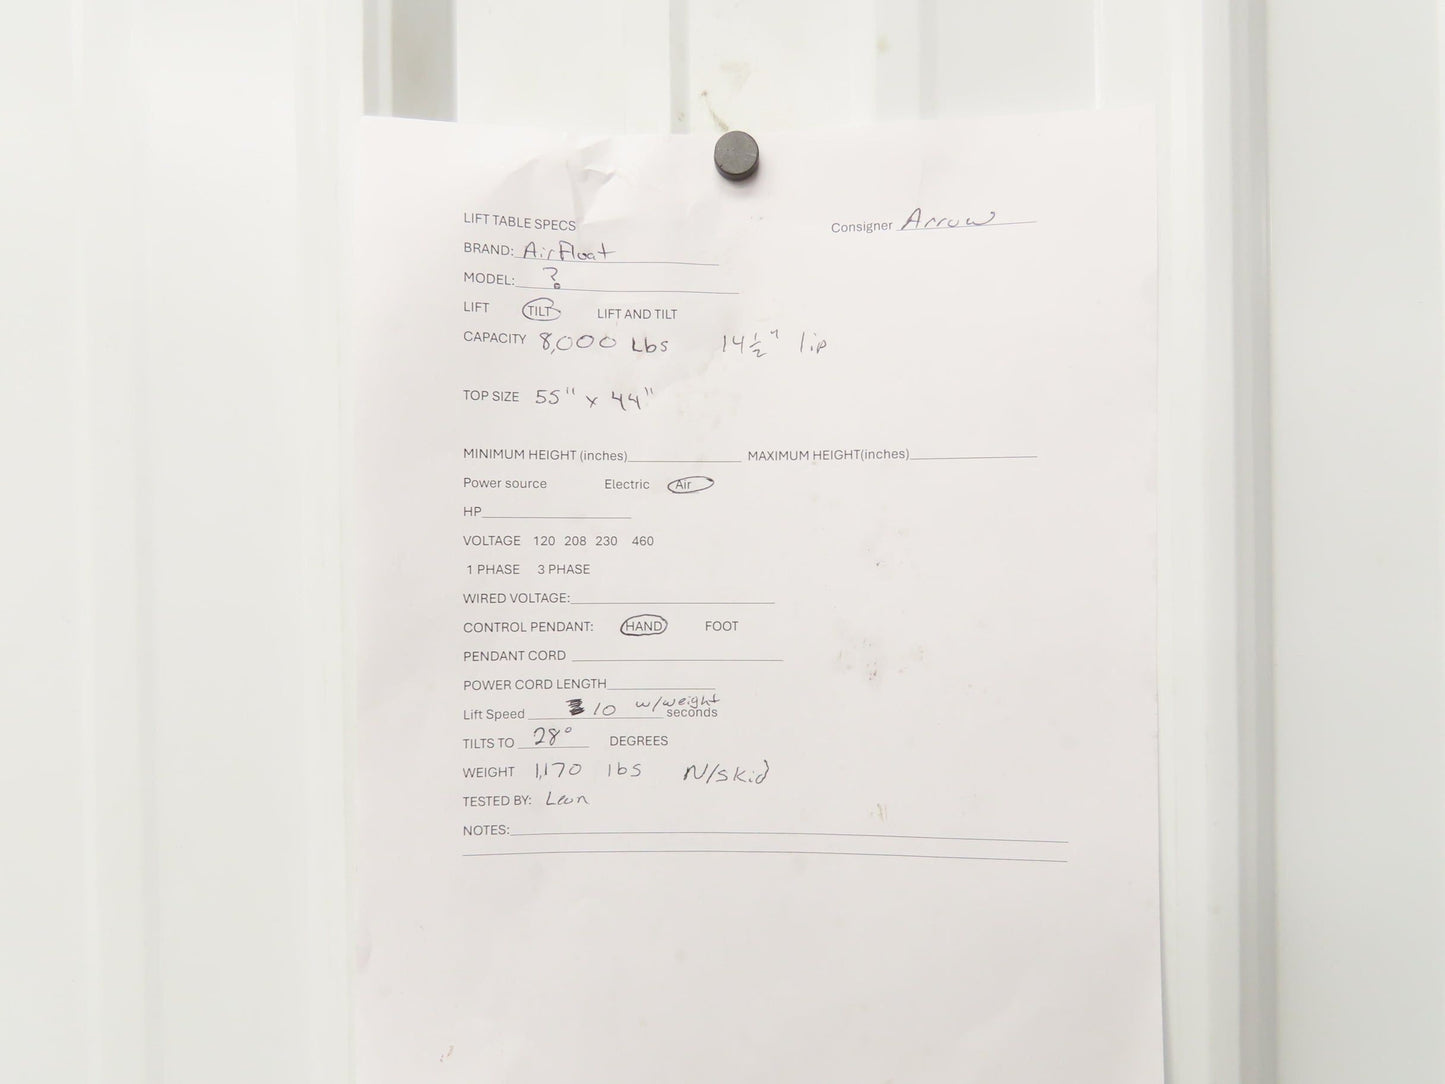 LIFT TABLE SPECS Consigner Arrow
BRAND: AirFloat
MODEL: ?
LIFT TILT LIFT AND TILT
CAPACITY 8,000 Lbs 14 1/2" lip
TOP SIZE 55" x 44"
MINIMUM HEIGHT (inches) MAXIMUM HEIGHT(inches)
Power source Electric Air
HP
VOLTAGE 120 208 230 460
1 PHASE 3 PHASE
WIRED VOLTAGE:
CONTROL PENDANT: HAND FOOT
PENDANT CORD
POWER CORD LENGTH
Lift Speed 10 w/weight seconds
TILTS TO 28° DEGREES
WEIGHT 1,170 lbs N/skid
TESTED BY: Leon
NOTES: